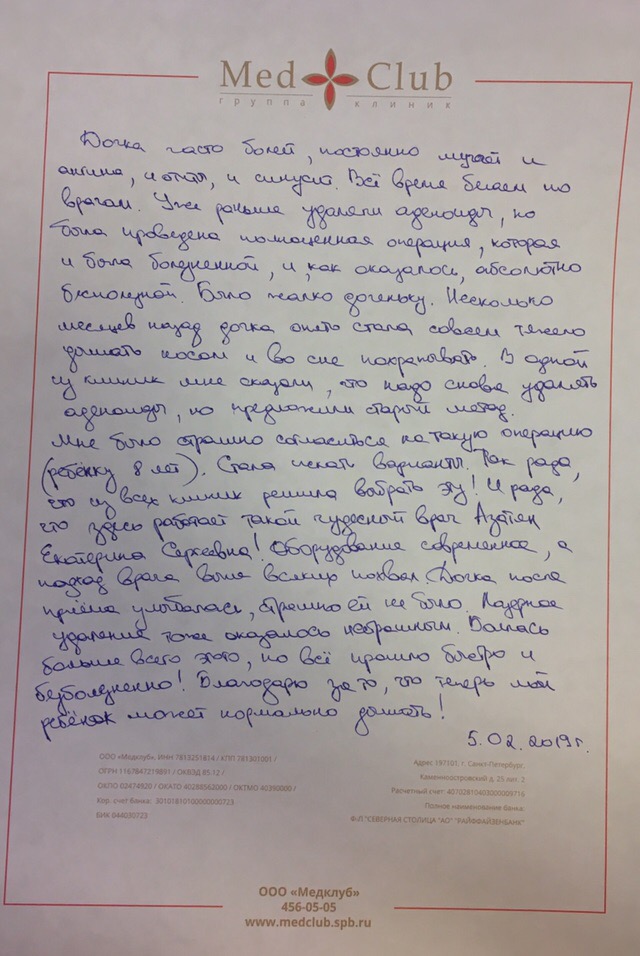 Med Club
группа клиник
Дочка часто болей, постоянно мучает и
ангина, и отиты, и синусит. Всё время бегаем по
врагам. Уже раньше удаляли аденоиды, но
была проведена полноценная операция, которая
и была болезненной, и, как оказалось, абсолютно
бесполезной. Было жалко доченьку. Несколько
месяцев назад дочка опять стала совсем тяжело
дышать носом и во сне похрапывать. В одной
из клиник мне сказали, что надо снова удалять
аденоиды, но предложили старый метод.
Мне было страшно согласиться на такую операцию
(ребёнку 8 лет). Стала искать варианты. Так рада,
что из всех клиник решила выбрать эту! И рада,
что здесь работает такой чудесный врач Азатян
Екатерина Сергеевна! Оборудование современное, а
подход врача выше всяких похвал. Дочка после
приёма улыбалась, страшно ей не было. Лазерное
удаление тоже оказалось нестрашным. Боялась
больше всего этого, но всё прошло быстро и
безболезненно! Благодарю за то, что теперь мой
ребёнок может нормально дышать!
5.02.2019г.
ООО «Медклуб», ИНН 7813251814 / КПП 781301001 /
ОГРН 1167847219891 / ОКВЭД 85-12 /
ОКПО 02474920 / ОКАТО 40288562000 / ОКТМО 40390000 /
Кор. счет Банка: 30101810100000000723
БИК 044030723
Адрес: 197101, г. Санкт-Петербург,
Каменноостровский д. 25 лит. 2
Расчетный счет: 40702810403000009716
Полное наименование банка:
Ф-Л "СЕВЕРНАЯ СТОЛИЦА "АО" "РАЙФФАЙЗЕНБАНК"
ООО «Медклуб»
456-05-05
www.medclub.spb.ru